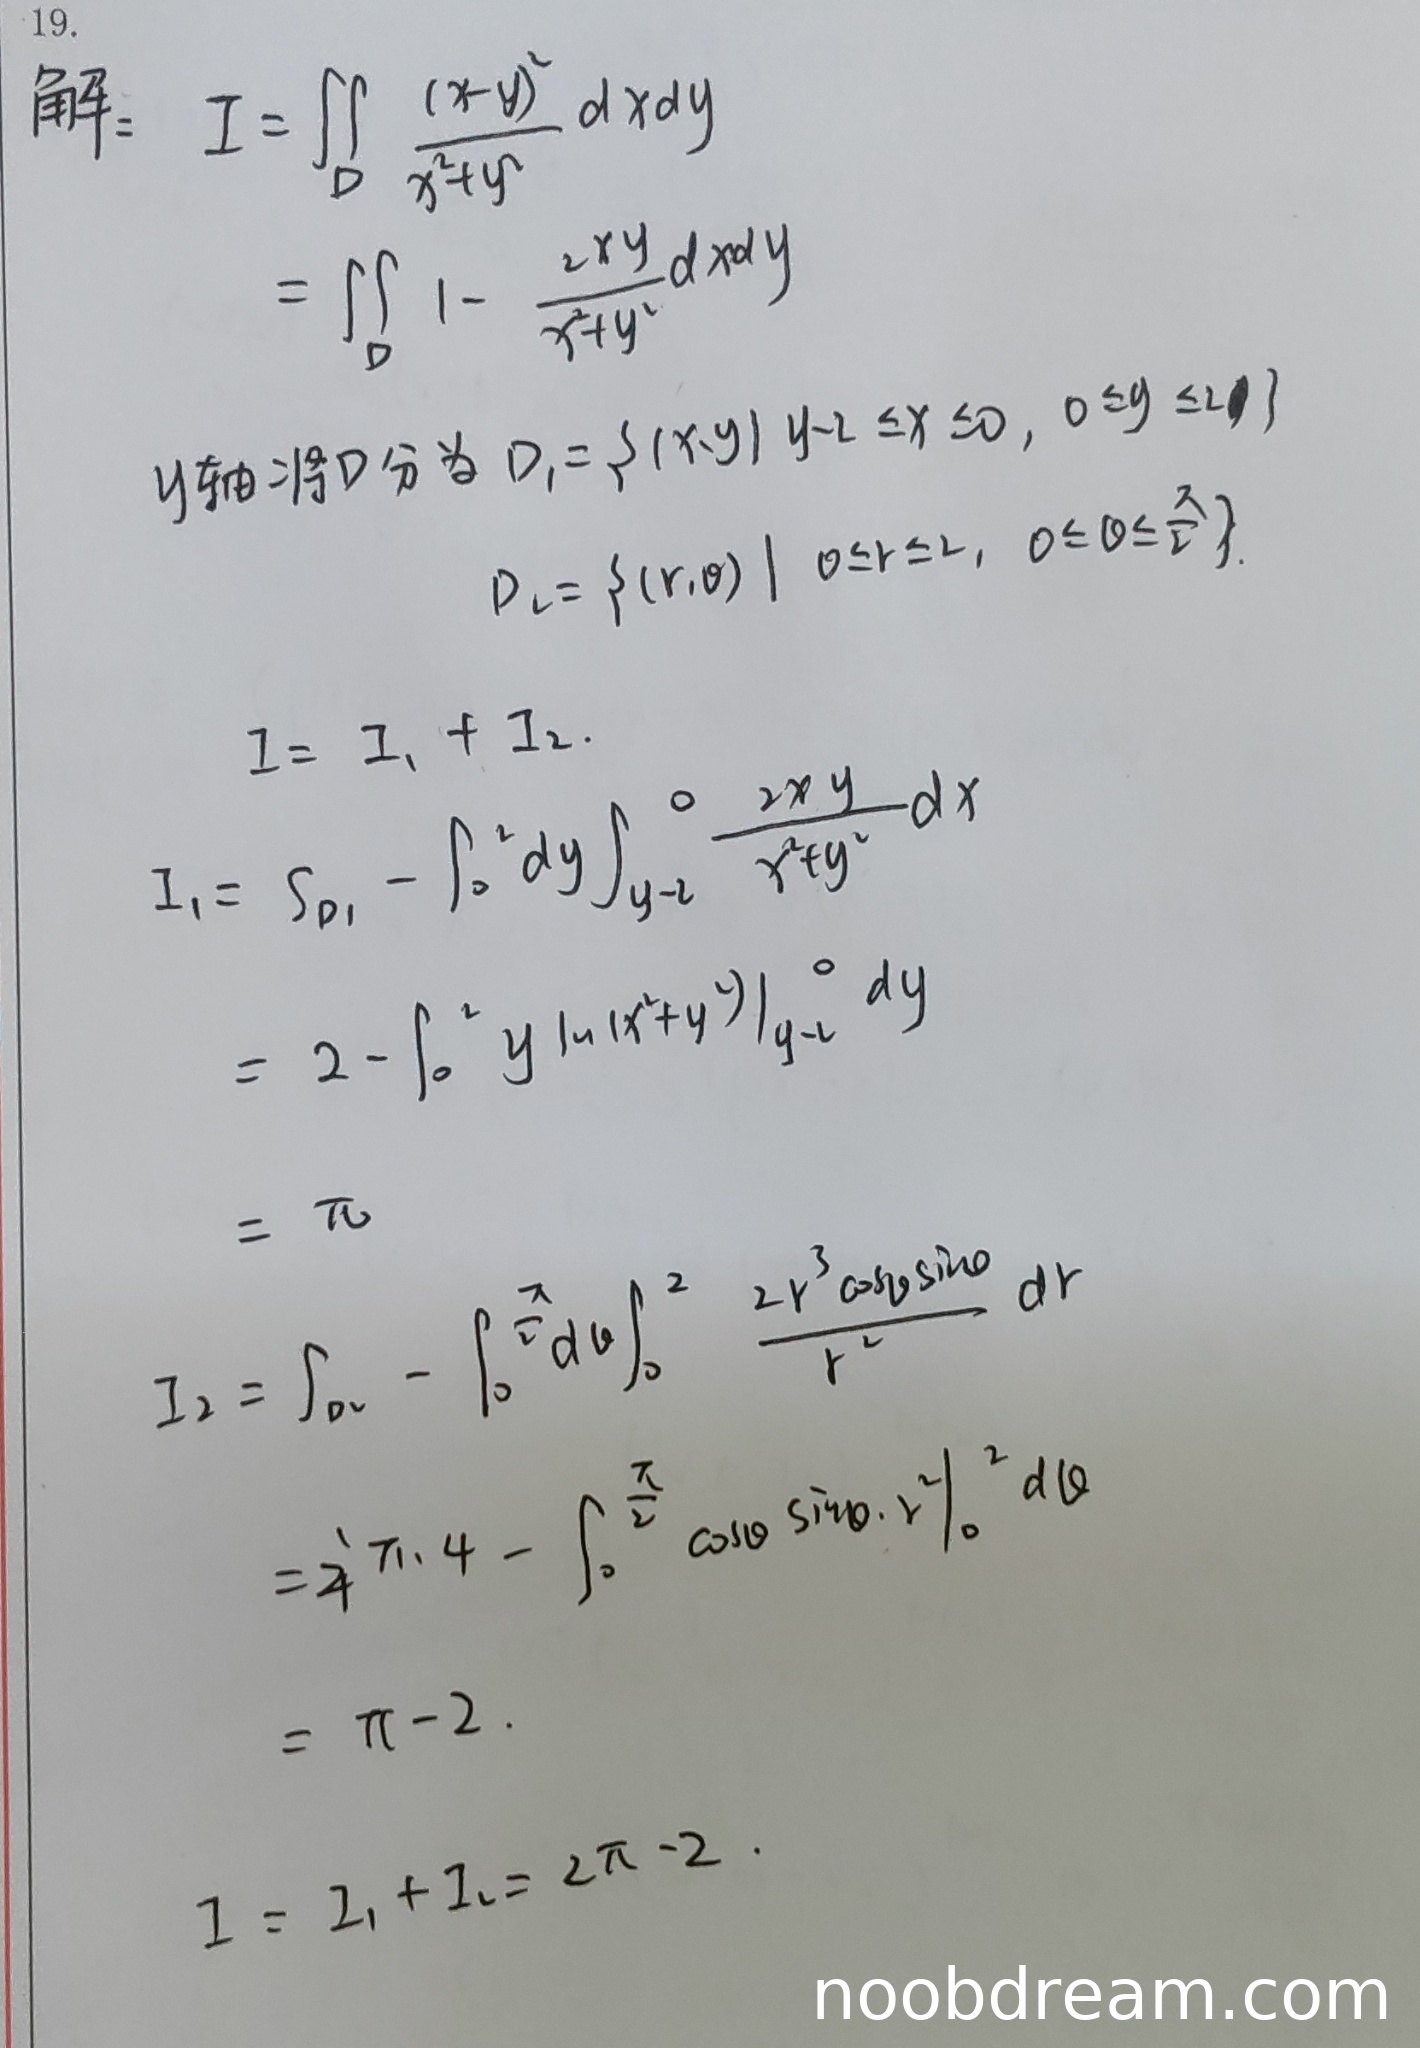 19.
解: I = ∬_D (x-y)²/(x²+y²) dxdy
= ∬_D 1 - 2xy/(x²+y²) dxdy
y轴将D分为 D₁={(x,y)| y-2≤x≤0, 0≤y≤2}
D₂={(r,θ)| 0≤r≤2, 0≤θ≤π/2}.
I = I₁ + I₂.
I₁ = S_{D₁} - ∫₀² dy ∫_{y-2}^0 2xy/(x²+y²) dx
= 2 - ∫₀² y ln(x²+y²)|_{y-2}^0 dy
= π
I₂ = S_{D₂} - ∫₀^{π/2} dθ ∫₀² 2r³cosθsinθ/r² dr
= 1/4 π·4 - ∫₀^{π/2} cosθ sinθ·r²|₀² dθ
= π-2.
I = I₁ + I₂ = 2π-2.
noobdream.com